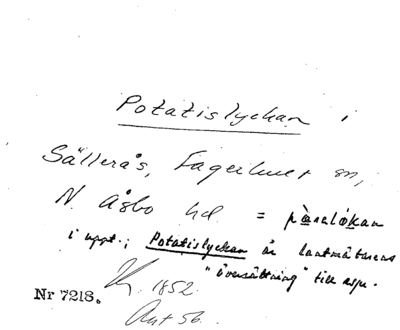 Potatislyckan i
Sällerås, Fagerhult sn,
N. Åsbo hd = pàrelókan
i uppt.; Potatislyckan är lantmätarens
"översättning" till
1852.
Nr 7218.